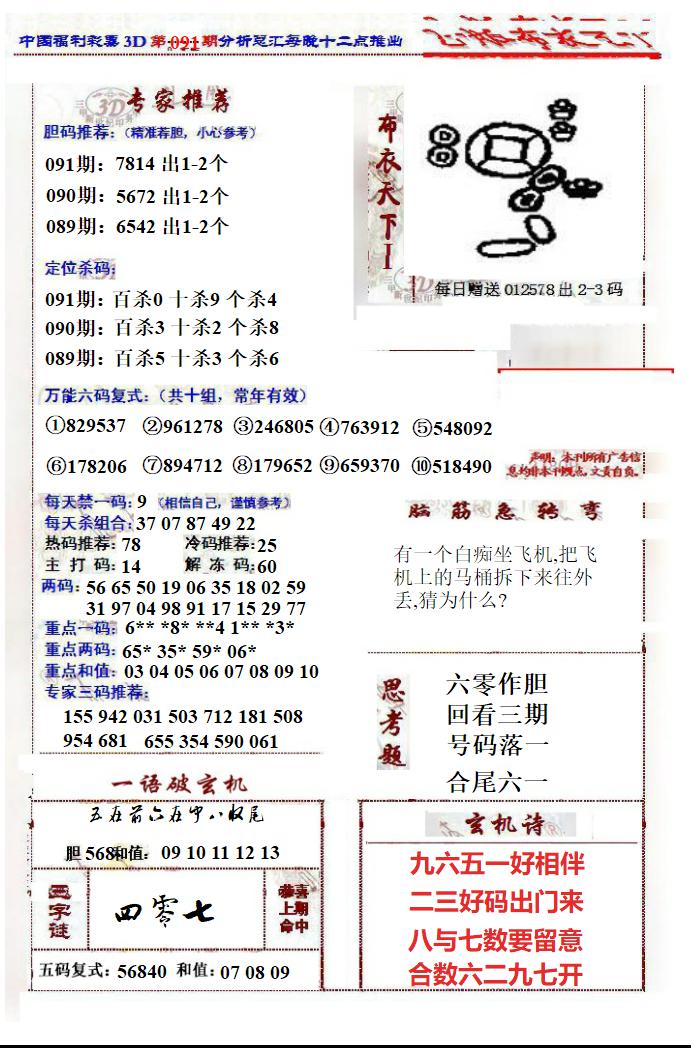 中国福利彩票3D 第091期分析总汇每晚十二点推出
3D 专家推荐
胆码推荐:(精准荐胆,小心参考)
091期: 7814 出1-2个
090期: 5672 出1-2个
089期: 6542 出1-2个
定位杀码:
091期: 百杀0 十杀9 个杀4
090期: 百杀3 十杀2 个杀8
089期: 百杀5 十杀3 个杀6
布衣天下I
每日赠送 012578 出 2-3 码
万能六码复式:(共十组, 常年有效)
①829537 ②961278 ③246805 ④763912 ⑤548092
⑥178206 ⑦894712 ⑧179652 ⑨659370 ⑩518490
声明: 本刊所有广告信
息均非本刊观点,文责自负。
每天禁一码: 9 (相信自己, 谨慎参考)
每天杀组合:37 07 87 49 22
热码推荐: 78 冷码推荐:25
主 打 码: 14 解 冻 码:60
两码: 56 65 50 19 06 35 18 02 59
31 97 04 98 91 17 15 29 77
重点一码: 6** *8* **4 1** *3*
重点两码: 65* 35* 59* 06*
重点和值: 03 04 05 06 07 08 09 10
专家三码推荐:
155 942 031 503 712 181 508
954 681 655 354 590 061
脑 筋 急 转 弯
有一个白痴坐飞机,把飞
机上的马桶拆下来往外
丢,猜为什么?
思考题
六零作胆
回看三期
号码落一
合尾六一
一语破玄机
五在前六在中八收尾
胆 568和值: 09 10 11 12 13
字谜
四零七
恭喜
上期
命中
五码复式: 56840 和值: 07 08 09
玄机诗
九六五一好相伴
二三好码出门来
八与七数要留意
合数六二九七开